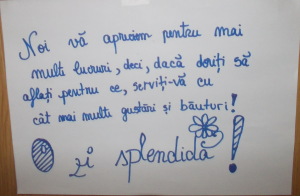 Noi vă apreciem pentru mai
multe lucruri, deci, dacă doriți să
aflați pentru ce, serviți-vă cu
cât mai multe gustări și băuturi!
O zi splendidă!